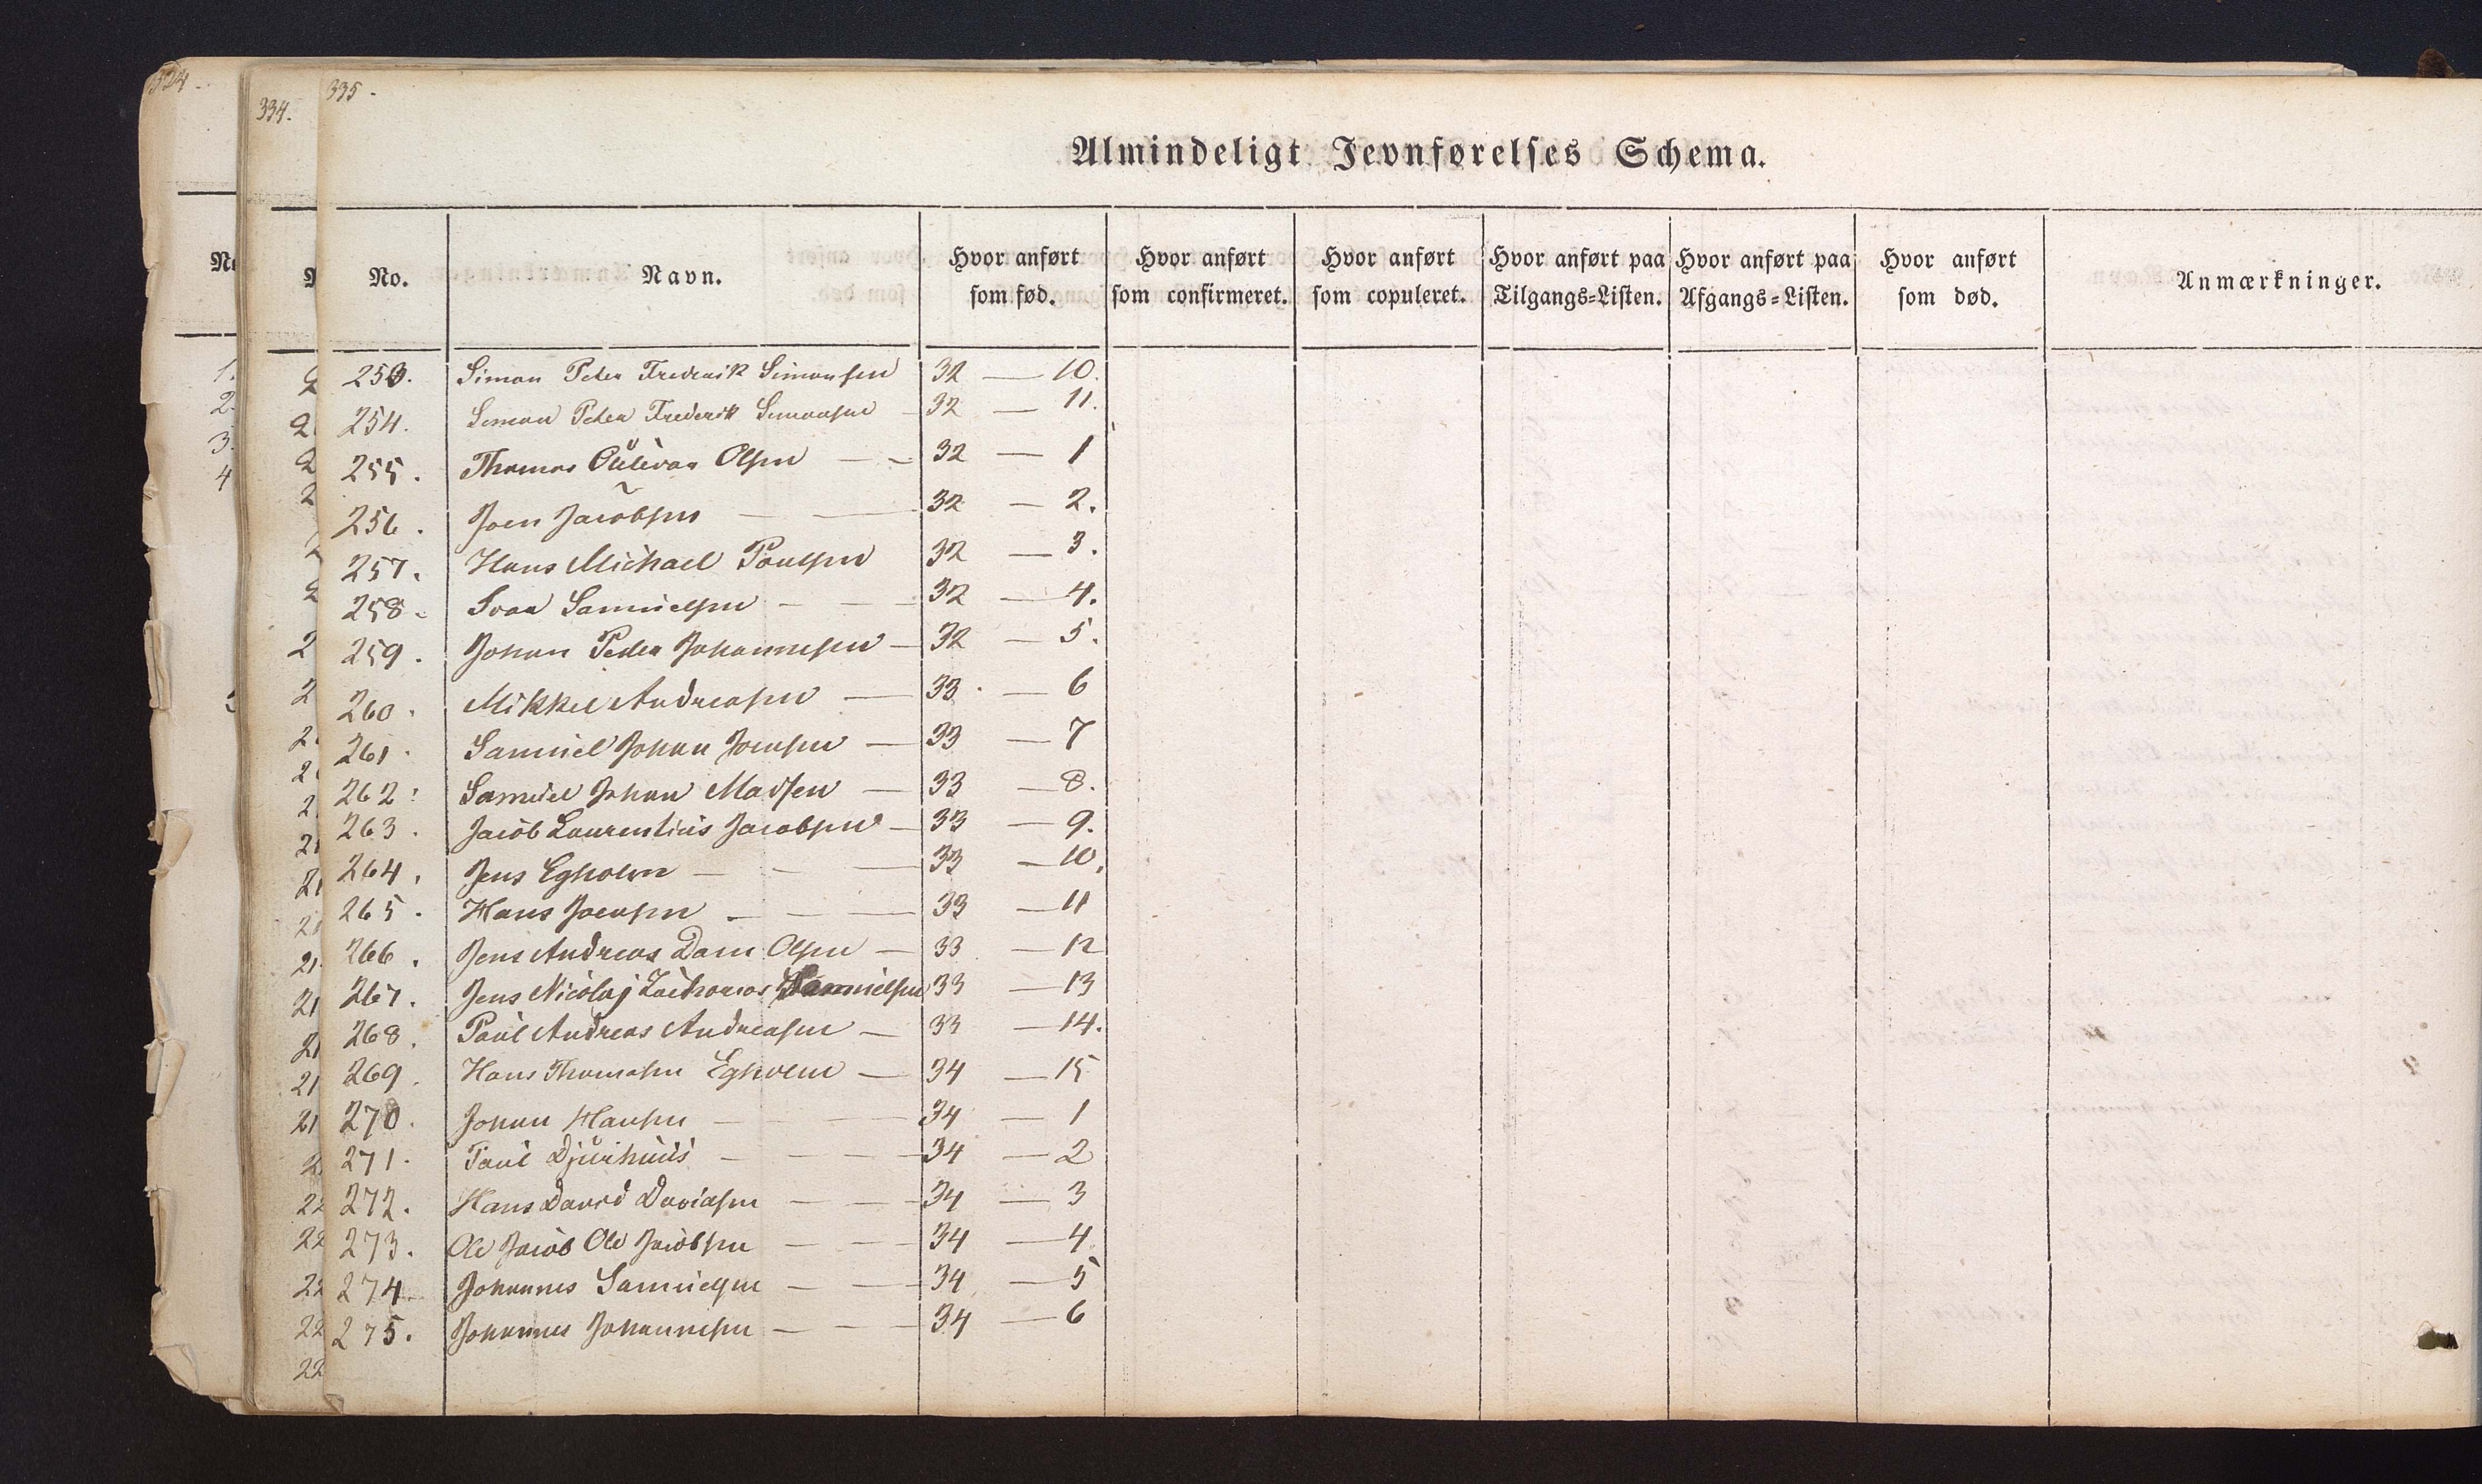 324.
334.
335.
Almindeligt Jevnførelses Schema.
No. Navn. Hvor anført som fød. Hvor anført som confirmeret. Hvor anført som copuleret. Hvor anført paa Tilgangs=Listen. Hvor anført paa Afgangs=Listen. Hvor anført som død. Anmærkninger.
253. Simon Peder Frederik Simonsen 32 — 10.
254. Simon Peder Frederik Simonsen — 32 — 11.
255. Thomas Olivar Olsen — — 32 — 1
256. Joen Jacobsen — — 32 — 2.
257. Hans Michael Poulsen 32 — 3.
258. Ivar Samuelsen — — 32 — 4.
259. Johan Peder Johannesen — 32 — 5.
260. Mikkel Andreasen — 33 — 6
261. Samuel Johan Joensen — 33 — 7
262. Samuel Johan Madsen — 33 — 8.
263. Jacob Laurentius Jacobsen — 33 — 9.
264. Jens Egholm — — — 33 — 10.
265. Hans Joensen — — — 33 — 11
266. Jens Andreas Dam Olsen — 33 — 12
267. Jens Nicolaj Zacharias Samuelsen 33 — 13
268. Paul Andreas Andreasen — 33 — 14.
269. Hans Thomasen Egholm — 34 — 15
270. Johan Hansen — — — 34 — 1
271. Paul Djurhuus — — — 34 — 2
272. Hans David Davidsen — — 34 — 3
273. Ole Jacob Ole Jacobsen — — 34 — 4
274. Johannes Samuelsen — — 34 — 5
275. Johannes Johannesen — — 34 — 6